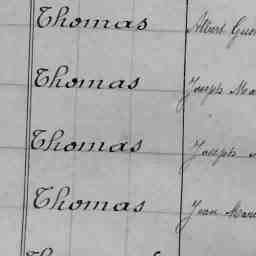 Thomas Albert
Thomas Joseph
Thomas Joseph
Thomas Jean
Thomas